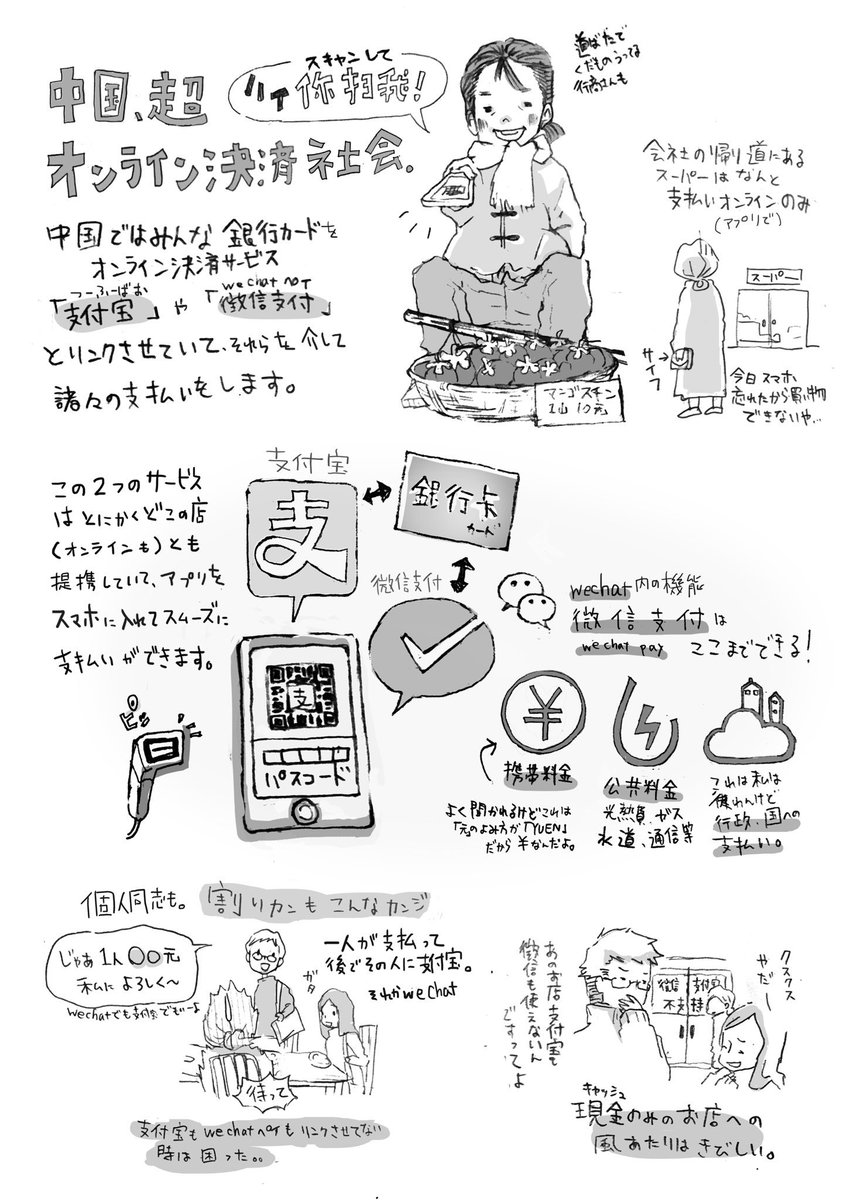 中国、超
オンライン決済社会.
スキャンして
ハイ 你扫我!
道ばたで
くだものうってる
行商さんも
中国ではみんな 銀行カードを
オンライン決済サービス
つーふーばお
「支付宝」や「微信支付」
とリンクさせていて、それらを介して
諸々の支払いをします。
マンゴスチン
1山 10元
会社の帰り道にある
スーパーはなんと
支払いオンラインのみ
(アプリで)
スーパー
サイフ
今日スマホ
忘れたから買い物
できないや...
この2つのサービス
はとにかくどこの店
(オンラインも)とも
提携していて、アプリを
スマホに入れてスムーズに
支払いができます。
ピッ
支付宝
支
銀行卡
カード
微信支付
支
パスコード
wechat内の機能
微信支付は
wechat pay
ここまでできる!
¥
携帯料金
よく聞かれるけどこれは
「元のよみ方が「YUEN」
だから¥なんだよ。
公共料金
光熱費、ガス
水道、通信等
これは私は
使わんけど
行政、国への
支払い。
個人同志も。 割りカンもこんなカンジ
じゃあ1人〇〇元
私によろしく〜
wechatでも支付宝でもいーよ
ガタ
一人が支払って
後でその人に支付宝。
それかwechat
待って
支付宝もwechat payもリンクさせてない
時は困った。。
あのお店支付宝も
微信も使えないん
ですってよ
微信 支付宝
不支持
クスクス
やだー
キャッシュ
現金のみのお店への
風あたりはきびしい。